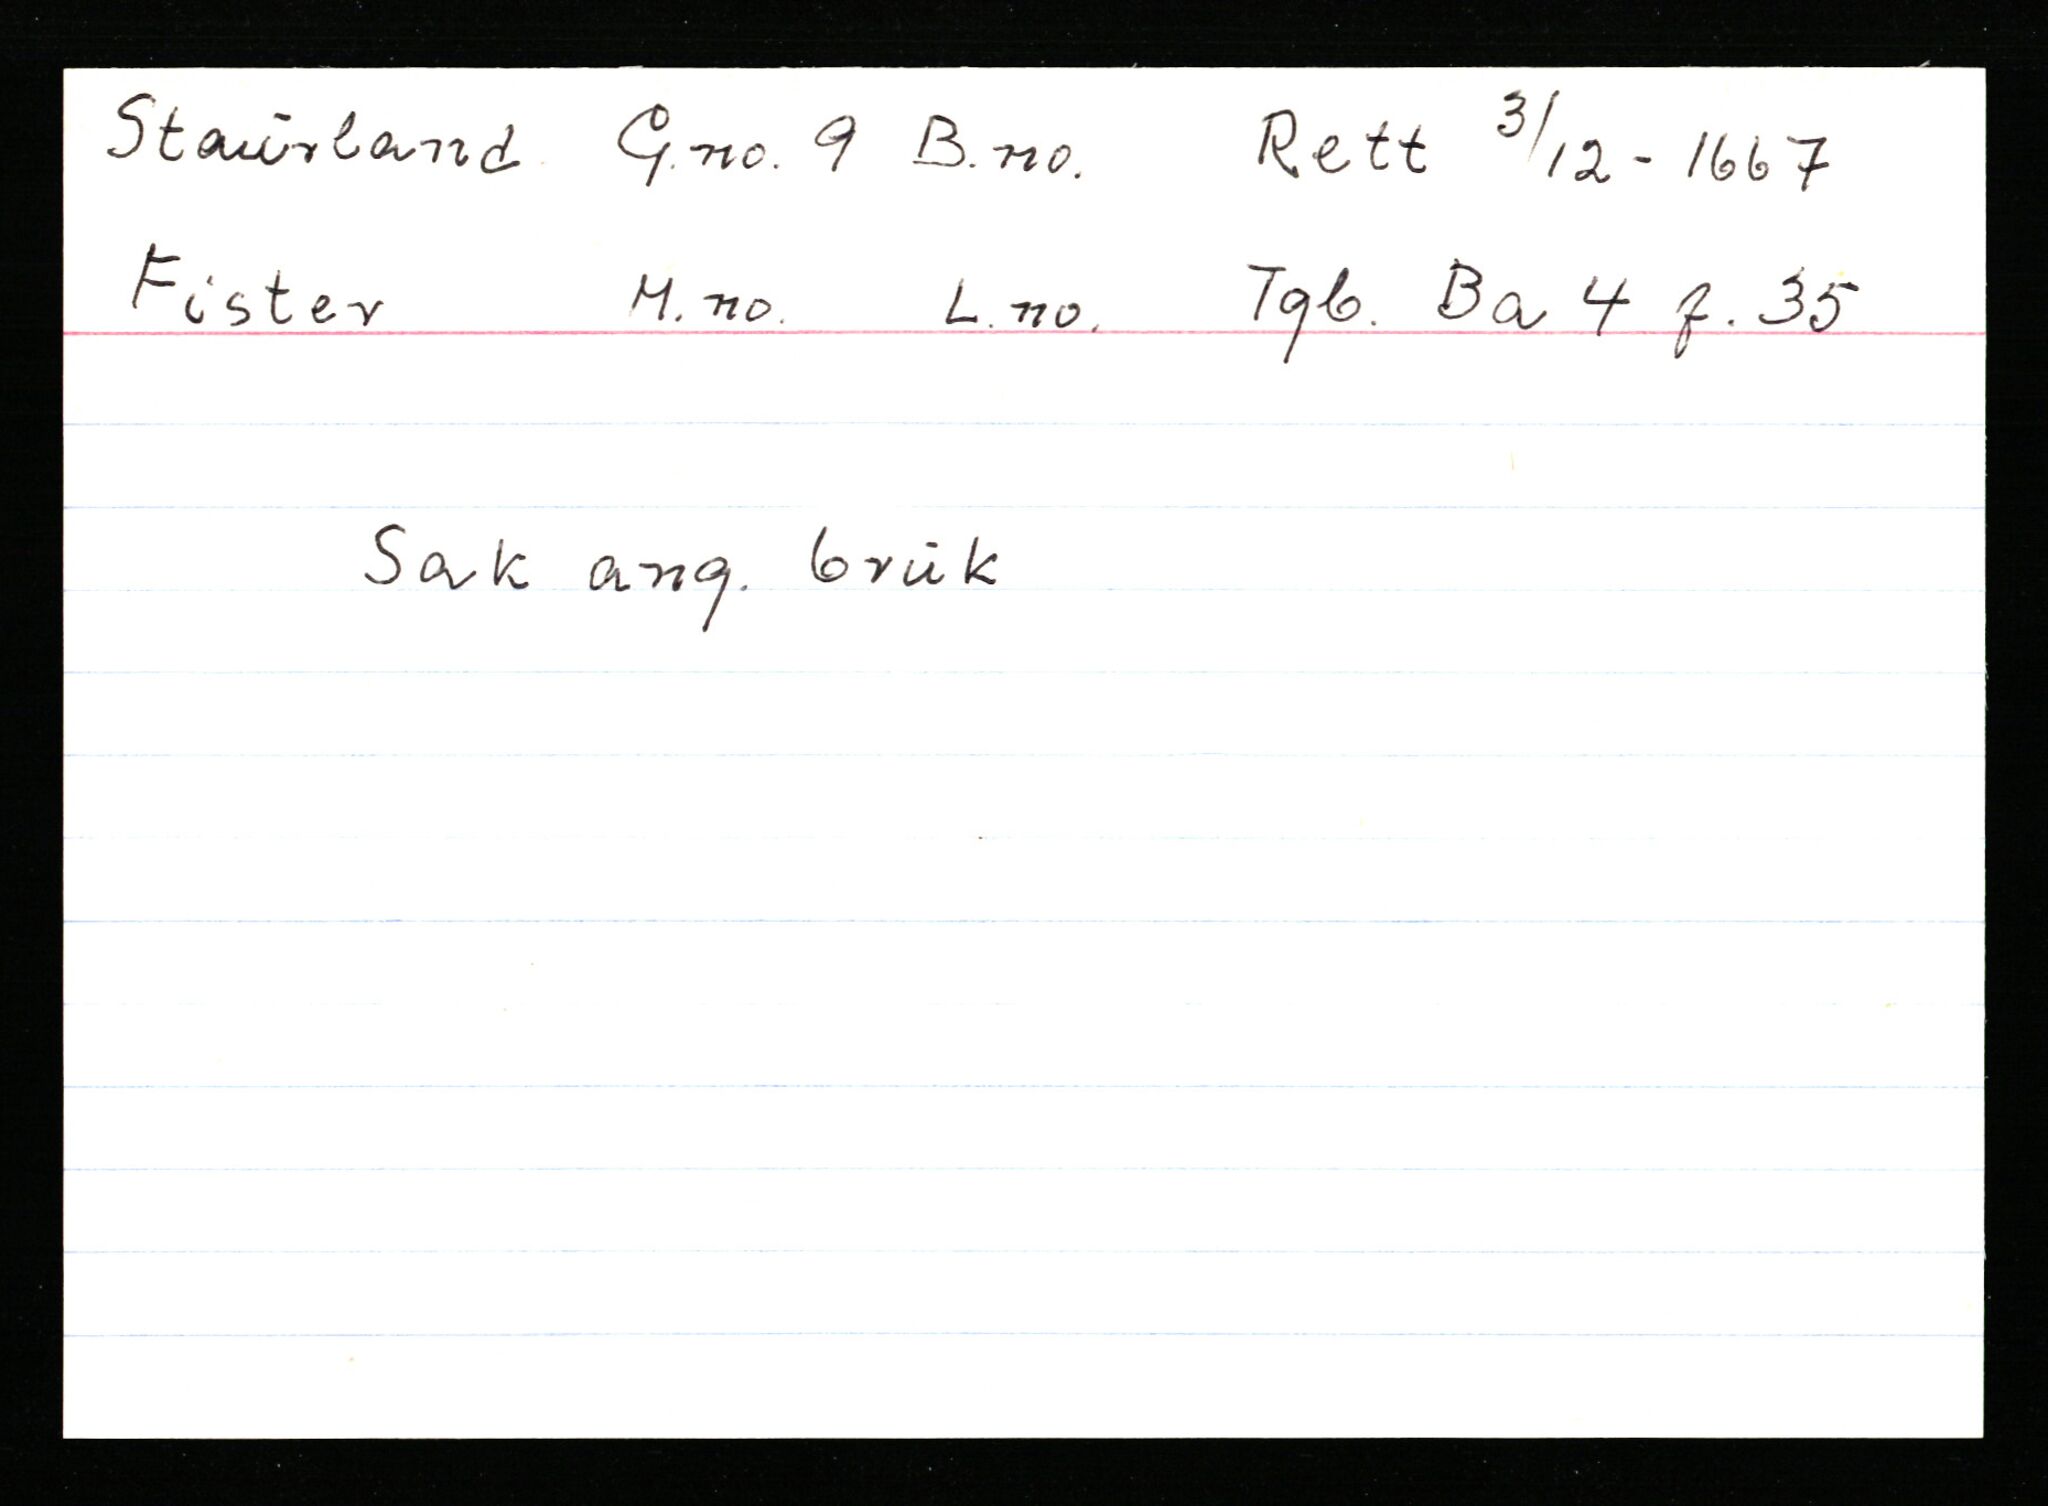 Staurland G.no. 9 B.no. Rett 3/12 - 1667
Fister M.no. L.no. Tgb. Ba 4 f. 35
Sak ang. bruk